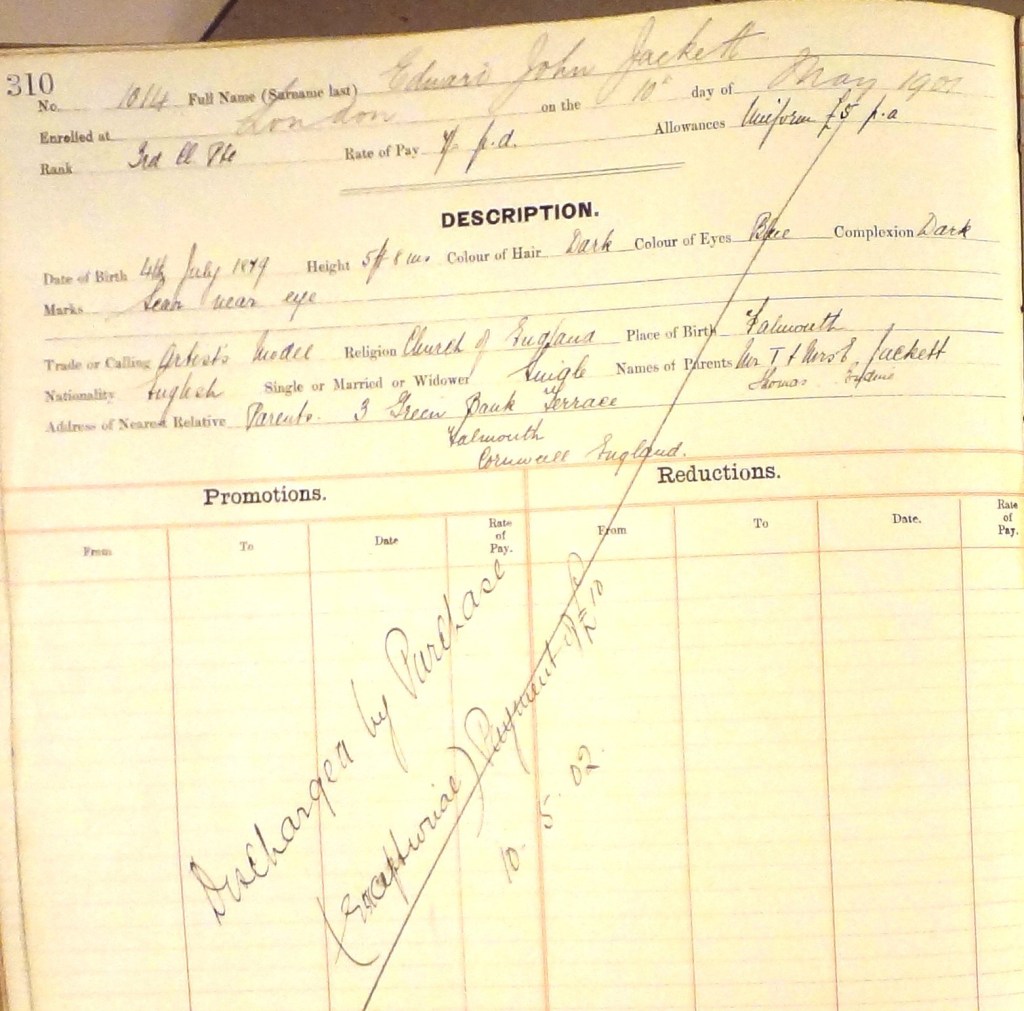 310
No. 1014 Full Name (Surname last) Edward John Jackett
Enrolled at London on the 10th day of May 1901
Rank 3rd Cl Pte Rate of Pay p.d. Allowances Uniform £5 p.a
DESCRIPTION.
Date of Birth 4th July 1879 Height 5ft 8 ins Colour of Hair Dark Colour of Eyes Blue Complexion Dark
Marks Scar near eye
Trade or Calling Artist's Model Religion Church of England Place of Birth Falmouth
Nationality English Single or Married or Widower Single Names of Parents Mr T & Mrs E. Jackett
Thomas
Address of Nearest Relative Parents. 3 Green Bank Terrace
Falmouth
Cornwall England.
Promotions. Reductions.
From To Date Rate of Pay. From To Date. Rate of Pay.
Discharged by Purchase
(Exceptional) Payment of £10
10. 5. 02